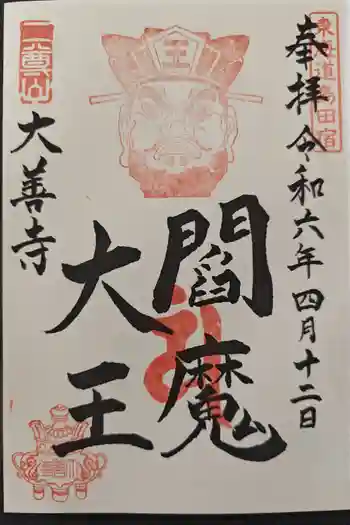 奉拝 令和六年四月十二日
東海道島田宿
王
閻魔
大王
大善寺